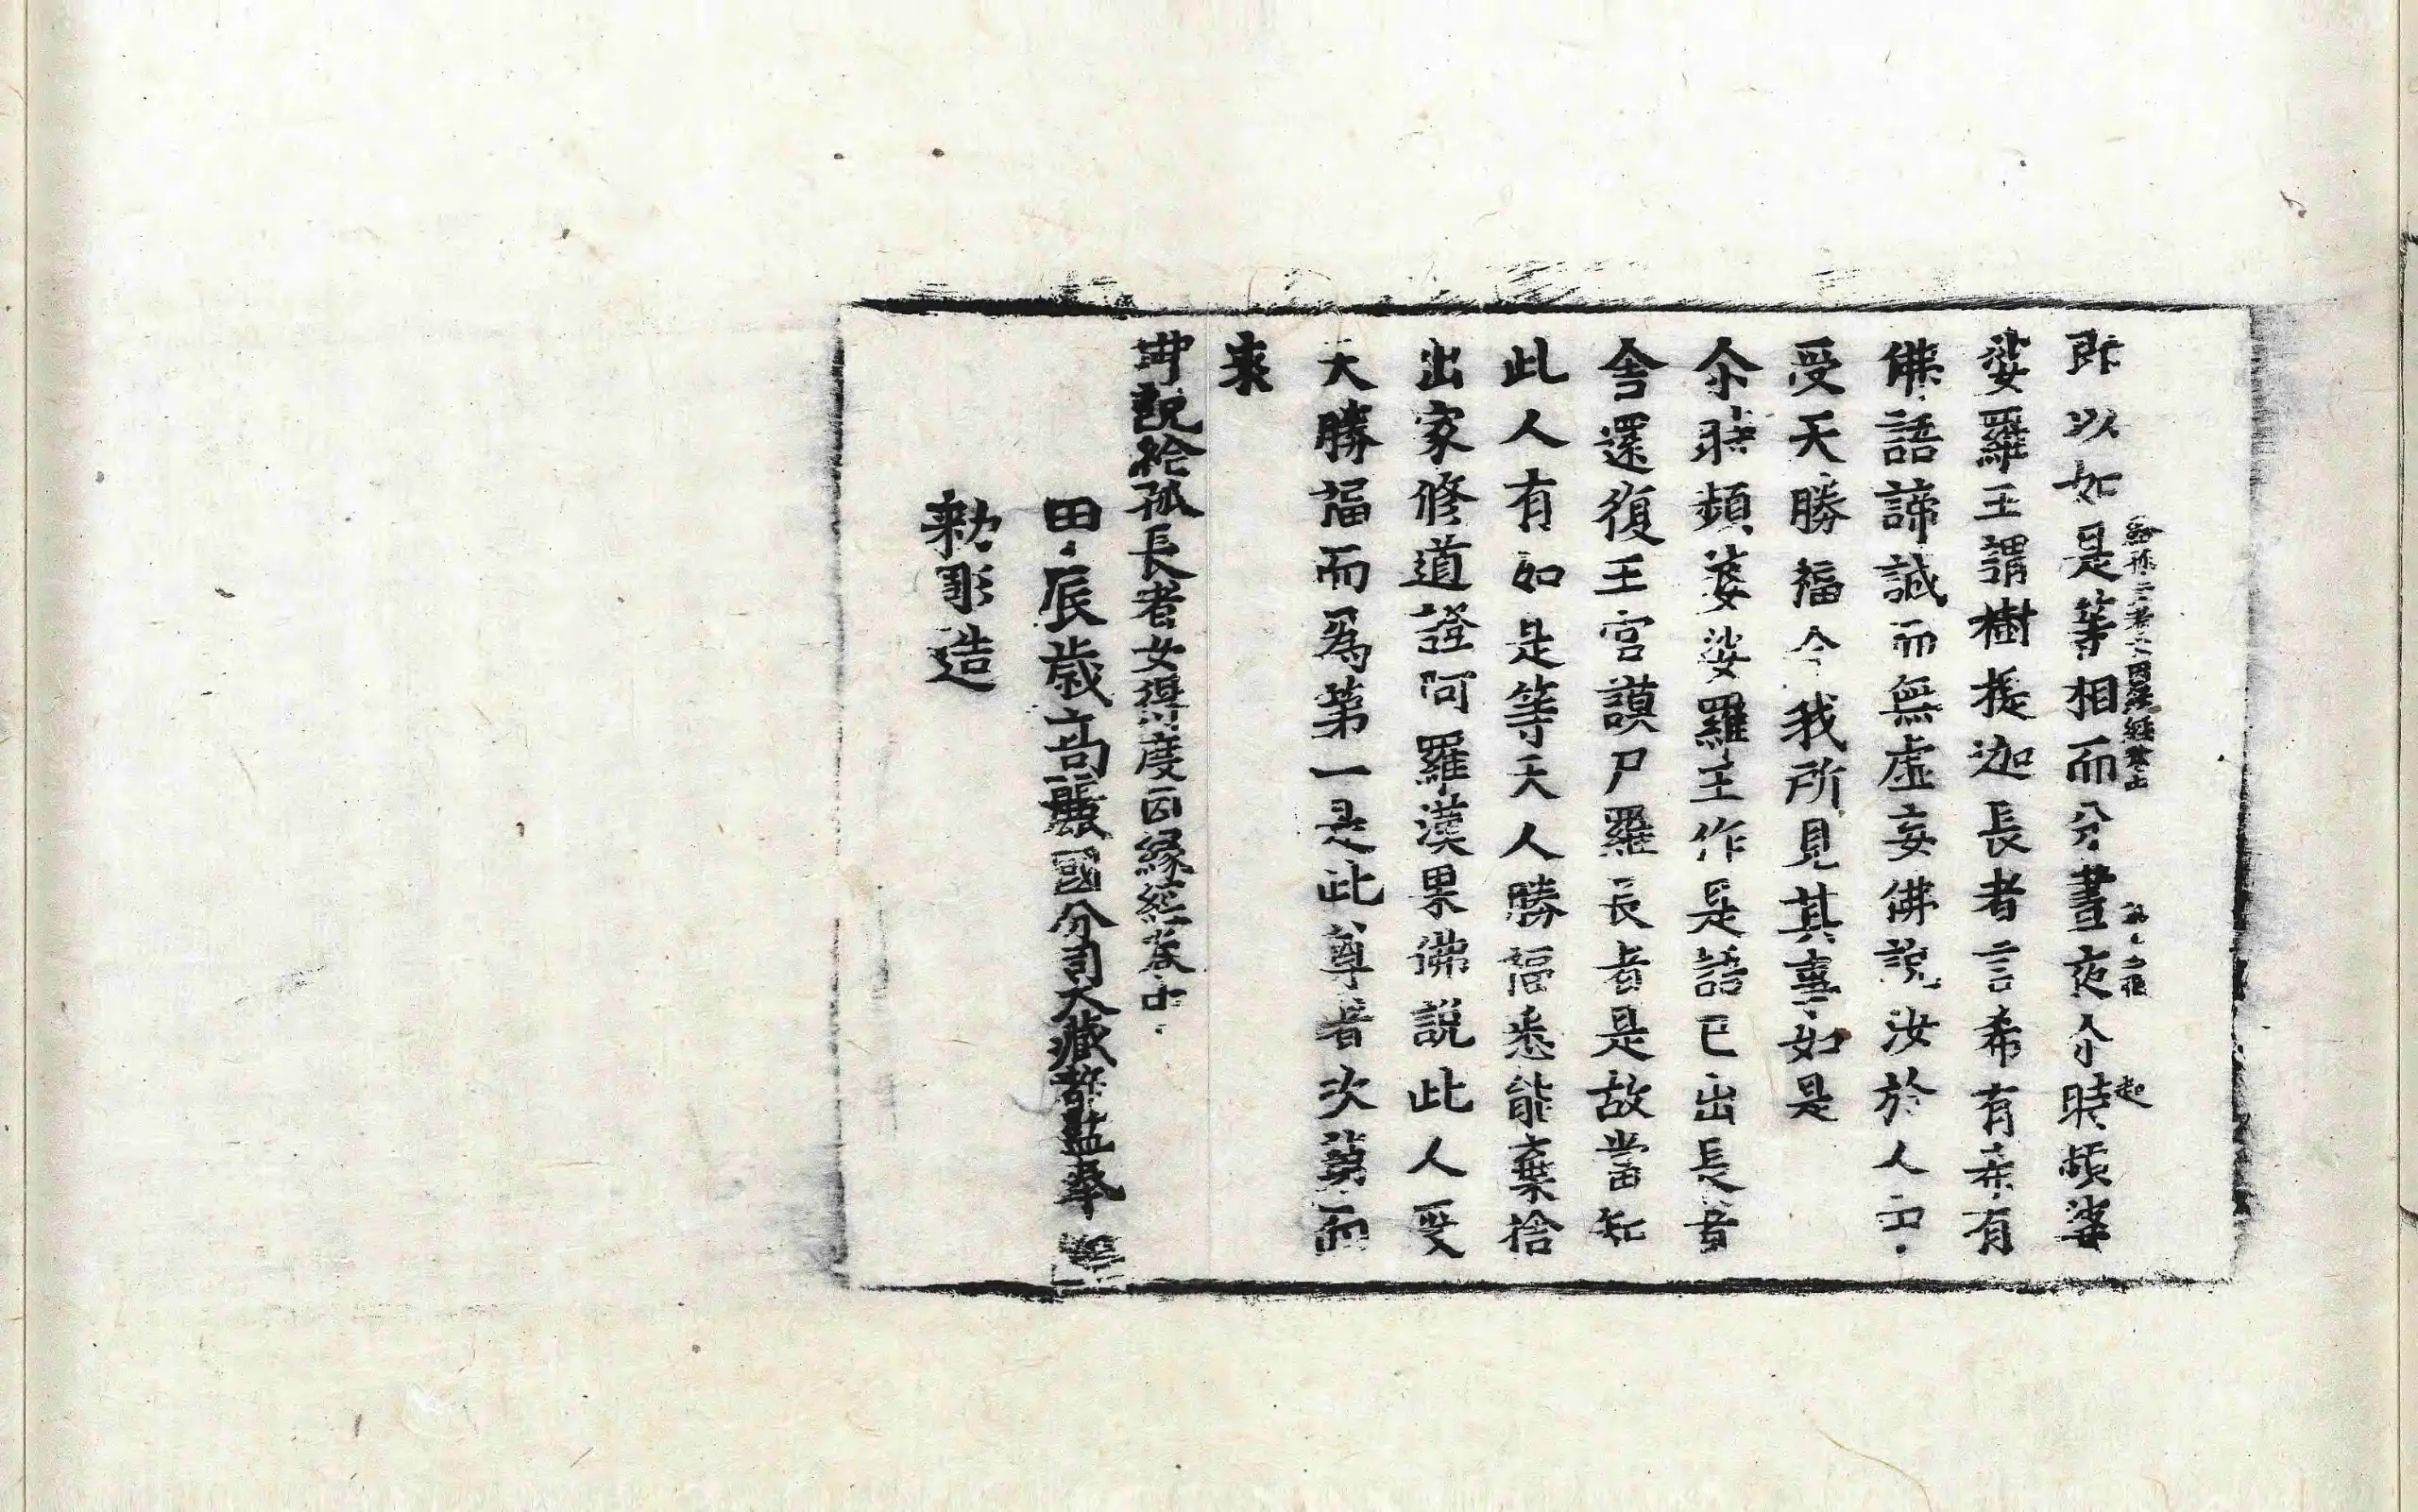 即以如是等相而分晝夜尒時頻婆
娑羅王謂樹提迦長者言希有希有
佛語諦誠而無虛妄佛說汝於人中
受天勝福今我所見其事如是
尒時頻婆娑羅王作是語已出長者
舍還復王宮謨尸羅長者是故當知
此人有如是等天人勝福悉能棄捨
出家修道證阿羅漢果佛說此人受
大勝福而爲第一是此尊者次第而
來
佛說給孤長者女得度因緣經卷中
甲辰歲高麗國分司大藏都監奉
勅彫造